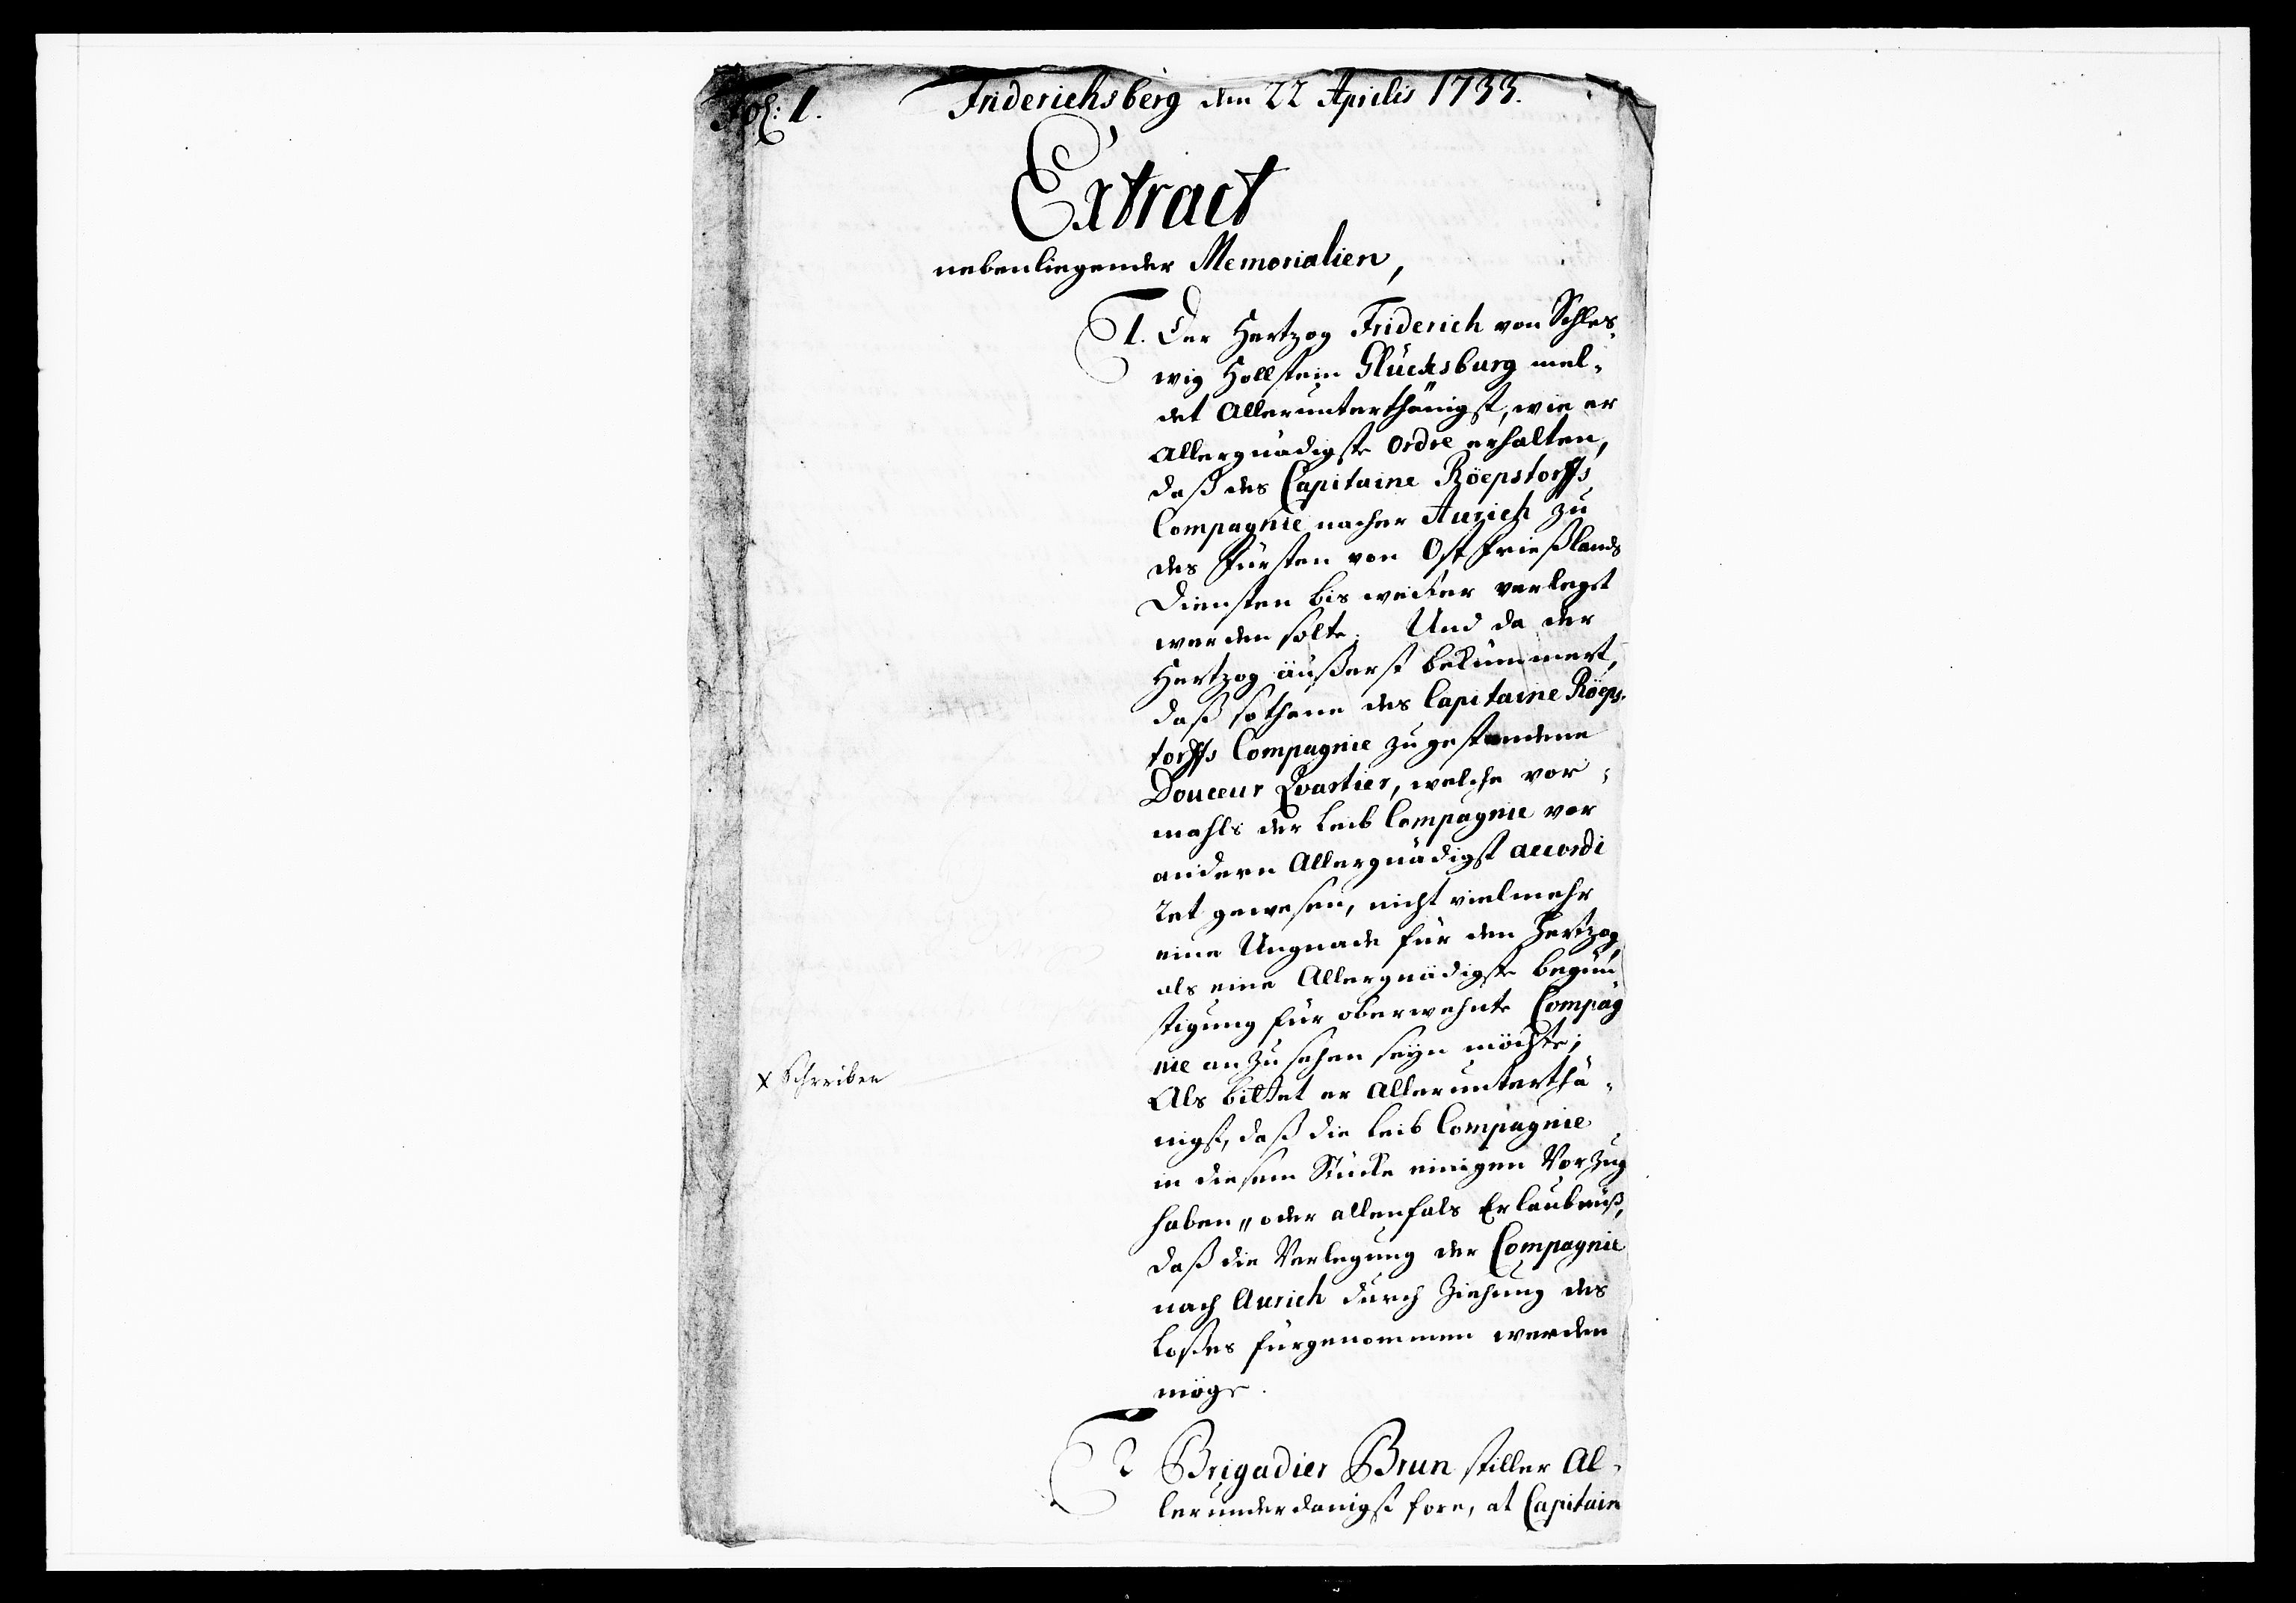 Fol: 1.
Friderichsberg den 22 Aprilis 1733.
Extract
nebenliegender Memorialien,
1. Der Hertzog Friderich von Schles-
wig Hollstein Glücksburg mel-
det Allerunterthänigst, wie er
Allergnädigste Ordre erhalten,
daß des Capitaine Röepstorffs
Compagnie nacher Aurich zu
des Fürsten von Ost Frießlands
Diensten bis weiter verlegt
werden solte. Und da der
Hertzog äußerst bekümmert,
daß sothane des Capitaine Röeps-
torffs Compagnie zugestandene
Douceur Qvartier, welche vor-
mahls der Leib Compagnie vor
andern Allergnädigst accordi
ret gewesen, nicht vielmehr
eine Ungnade für den Hertzog,
als eine Allergnädigste begün
stigung für oberwehnte Compag
nie anzusehen seyn möchte;
x Schreiben
Als bittet er Allerunterthä-
nigst, daß die Leib Compagnie
in diesem Stücke einigen Vorzug
haben, oder allenfals Erlaubnüß,
daß die Verlegung der Compagnie
nach Aurich durch Ziehung des
Loßes fürgenommen werden
möge.
2 Brigadier Brun stiller Al-
lerunderdanigst fore, at Capitain